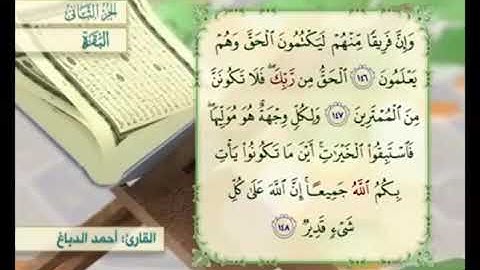 الجزء الثاني
البقرة
وَإِنَّ فَرِيقًا مِّنْهُمْ لَيَكْتُمُونَ الْحَقَّ وَهُمْ
يَعْلَمُونَ ١٤٦ الْحَقُّ مِن رَّبِّكَ ۖ فَلَا تَكُونَنَّ
مِنَ الْمُمْتَرِينَ ١٤٧ وَلِكُلٍّ وِجْهَةٌ هُوَ مُوَلِّيهَا ۖ
فَاسْتَبِقُوا الْخَيْرَاتِ ۚ أَيْنَ مَا تَكُونُوا يَأْتِ
بِكُمُ اللَّهُ جَمِيعًا ۚ إِنَّ اللَّهَ عَلَىٰ كُلِّ
شَيْءٍ قَدِيرٌ ١٤٨
القارئ: أحمد الدباغ